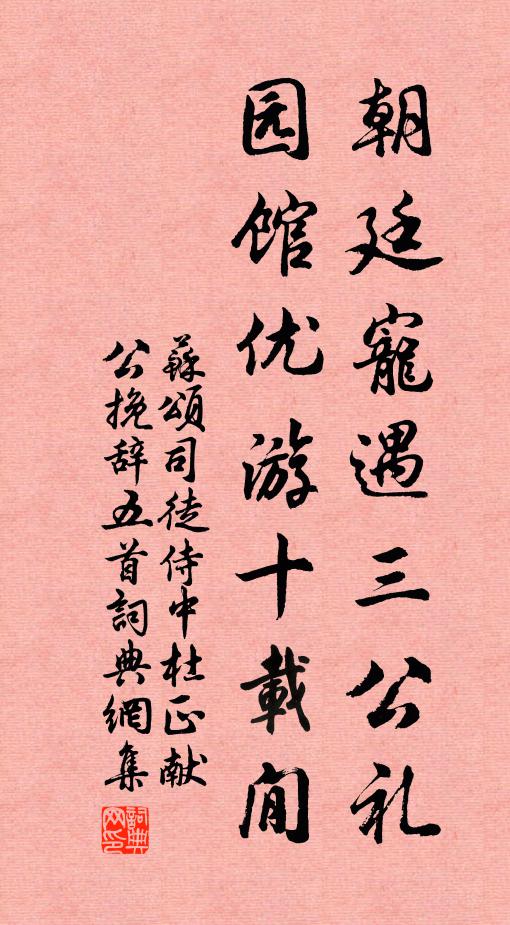 朝廷寵遇三公礼
园馆优游十載闲
蘇頌司徒侍中杜正献
公挽辞五首詞典網集
詞典网印